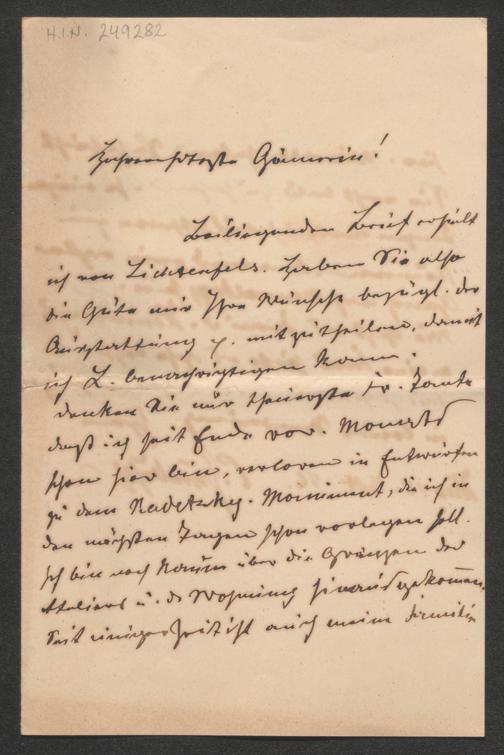 H.I.N. 249282
Hochverehrteste Gönnerin!
Beiliegenden Brief erhielt
ich von Lichtenfels. Haben Sie also
die Güte mir Ihre Wünsche bezügl. der
Ausstattung p. mitzutheilen, damit
ich L. benachrichtigen kann.
Denken Sie nur theuerste Fr. Tante
daß ich seit Ende vor. Monats
schon hier bin, verloren in Entwürfen
zu dem Radetzky-Monument, die ich in
den nächsten Tagen schon vorlegen soll.
Ich bin noch kaum über die Gränzen der
Ateliers u. der Wohnung hinausgekommen.
Seit einiger Zeit ist auch meine Familie